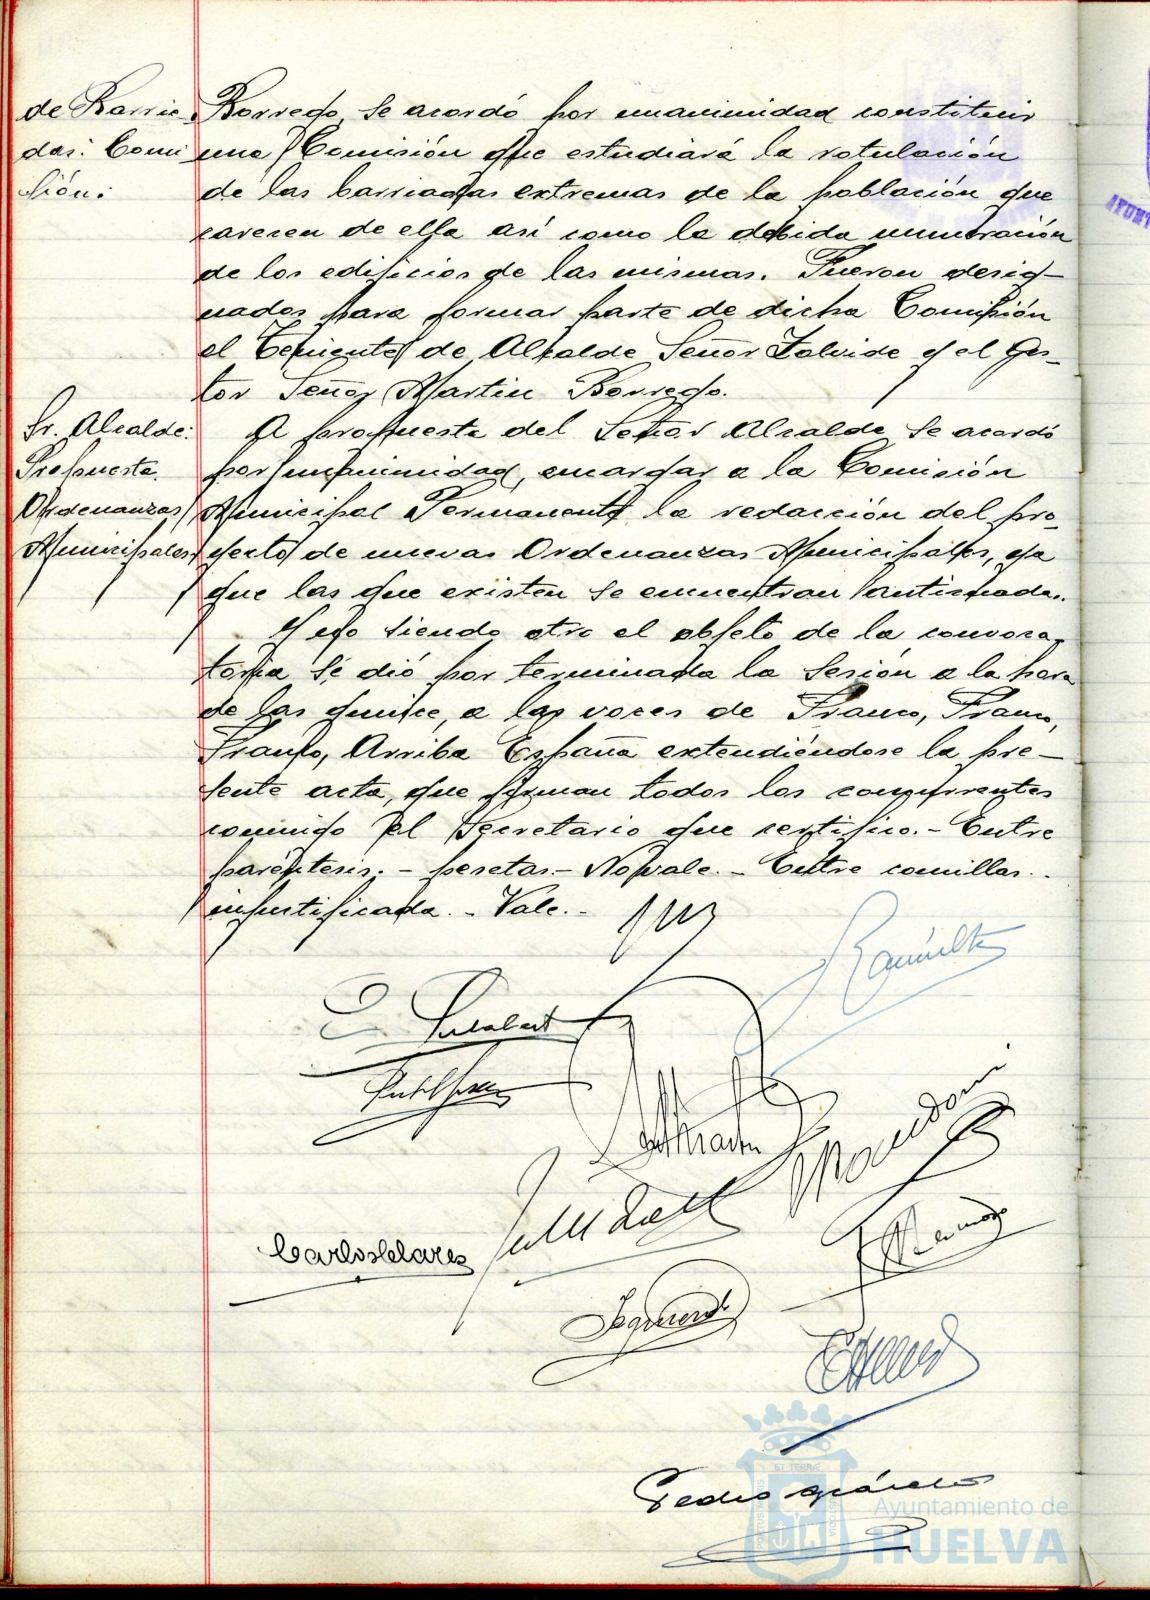 de Barria-
das: Comi
sión:
Borrego, se acordó por unanimidad constituir
una Comisión que estudiará la rotulación
de las barriadas extremas de la población que
carecen de ella así como la debida numeración
de los edificios de las mismas. Fueron desig-
nados para formar parte de dicha Comisión
el Teniente de Alcalde Señor y el Ges-
tor Señor Martin Borrego.
Sr. Alcalde:
Propuesta.
Ordenanzas
Municipales
A propuesta del Señor Alcalde se acordó
por unanimidad, encargar a la Comisión
Municipal Permanente la redacción del pro-
yecto de nuevas Ordenanzas Municipales, ya
que las que existen se encuentran anticuadas.
Y no siendo otro el objeto de la convoca-
toria se dió por terminada la sesión a la hora
de las quince, a las voces de Franco, Franco,
Franco, Arriba España extendiéndose la pre-
sente acta, que firman todos los concurrentes
conmigo el Secretario que certifico.- Entre
paréntesis.- pesetas.- No vale.- Entre comillas.-
injustificada.- Vale.-
Carlos
Izquierdo
Pedro
Ayuntamiento de
HUELVA